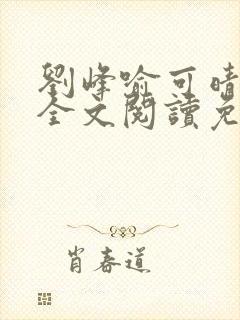 劉峰喻可晴
全文閱讀免
肖春道